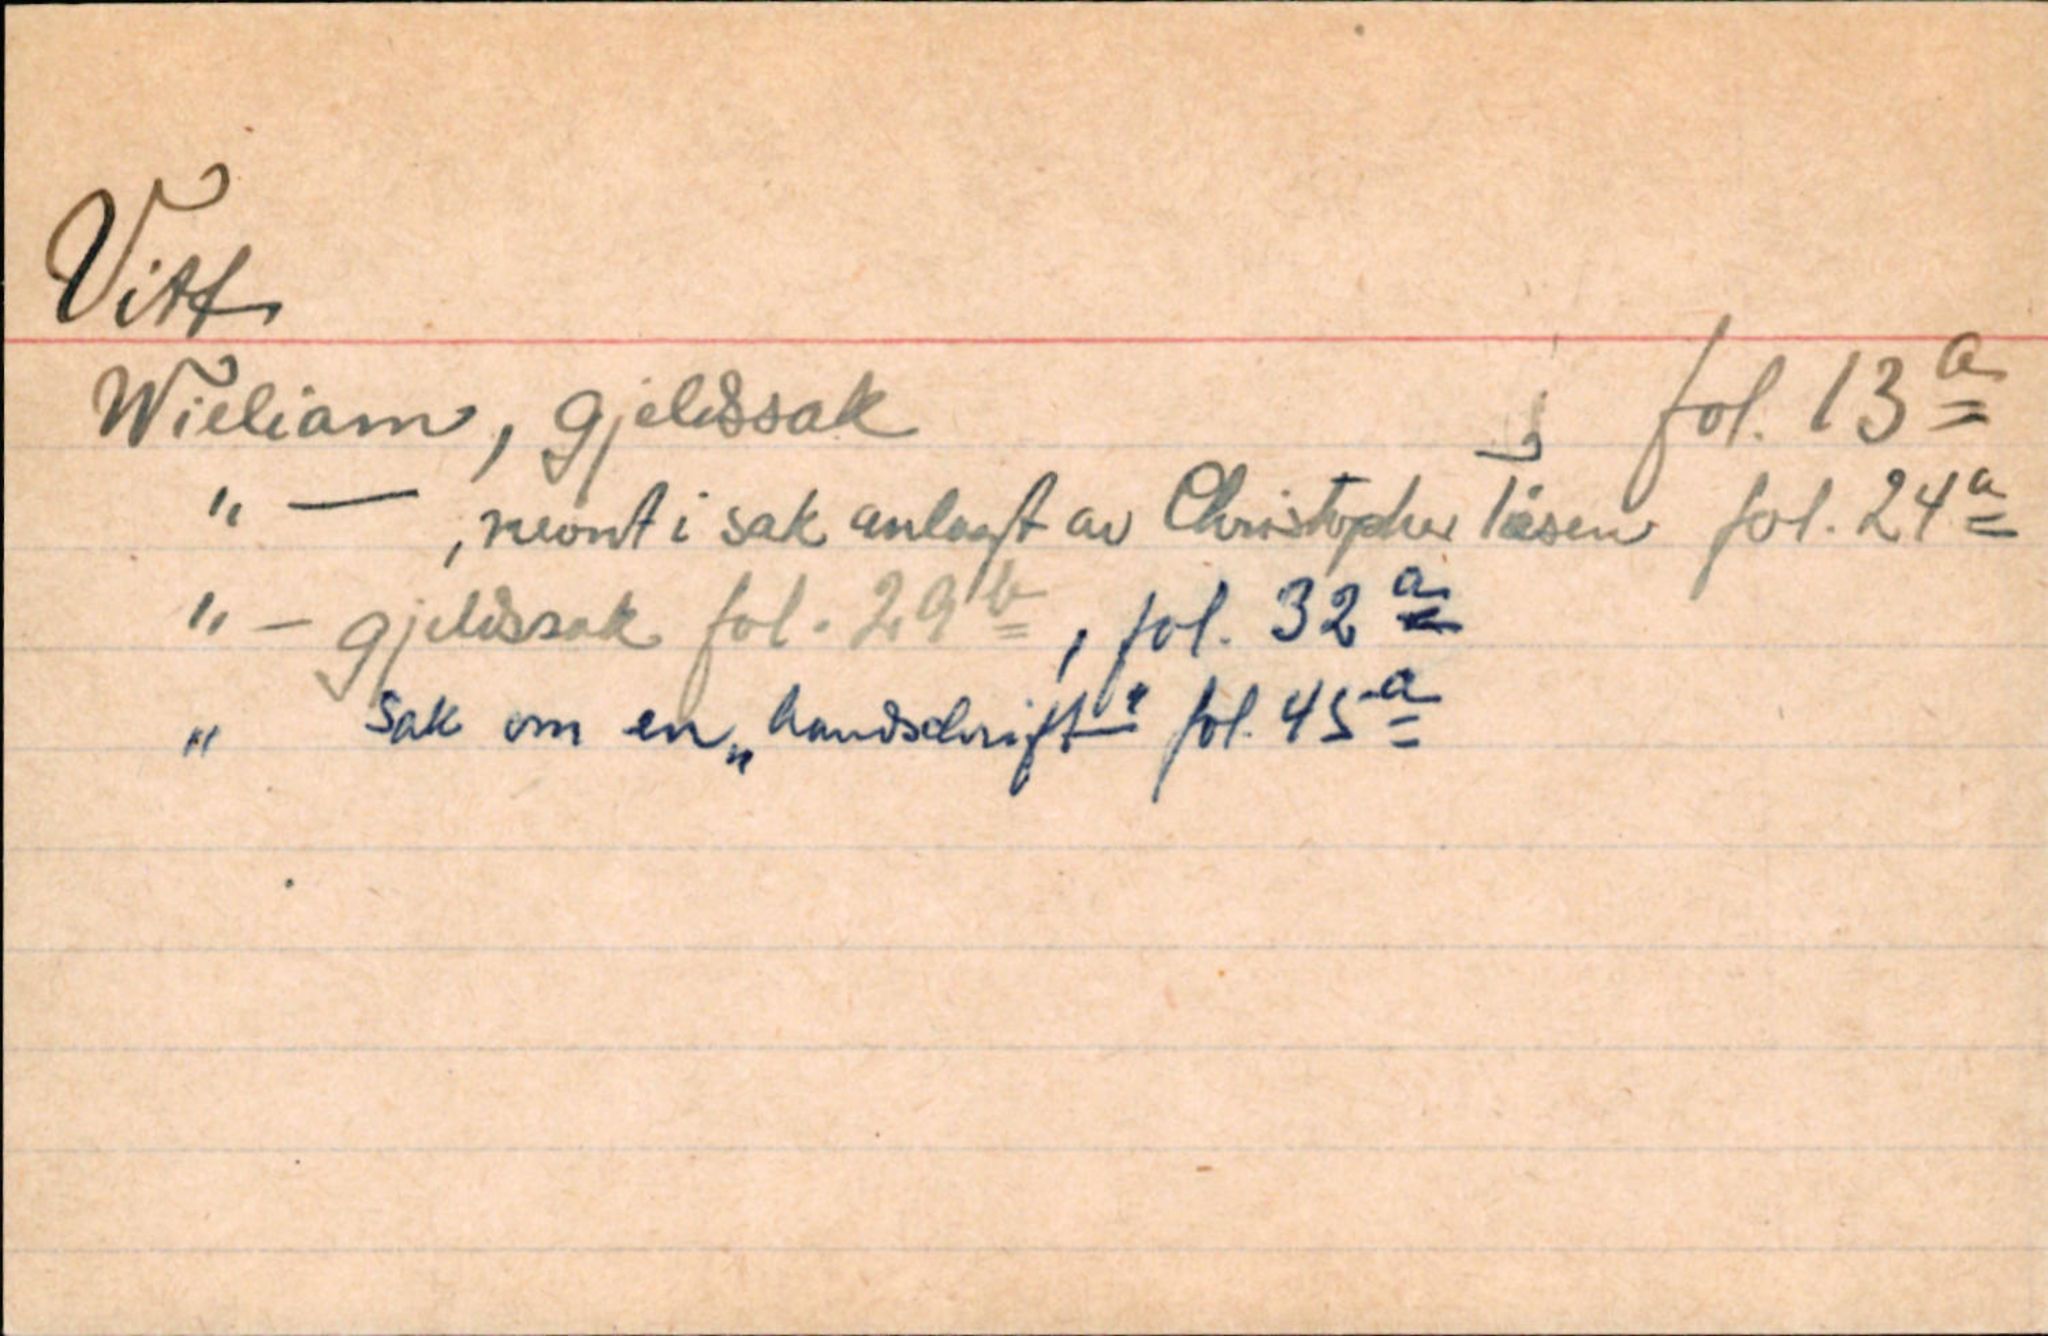 Vitt
Wieliam, gjeldssak fol. 13 a
" — , nevnt i sak anlagt av Christopher fol. 24 a
" — gjeldssak fol. 29 b, fol. 32 a
" Sak om en „handschrift" fol. 45 a